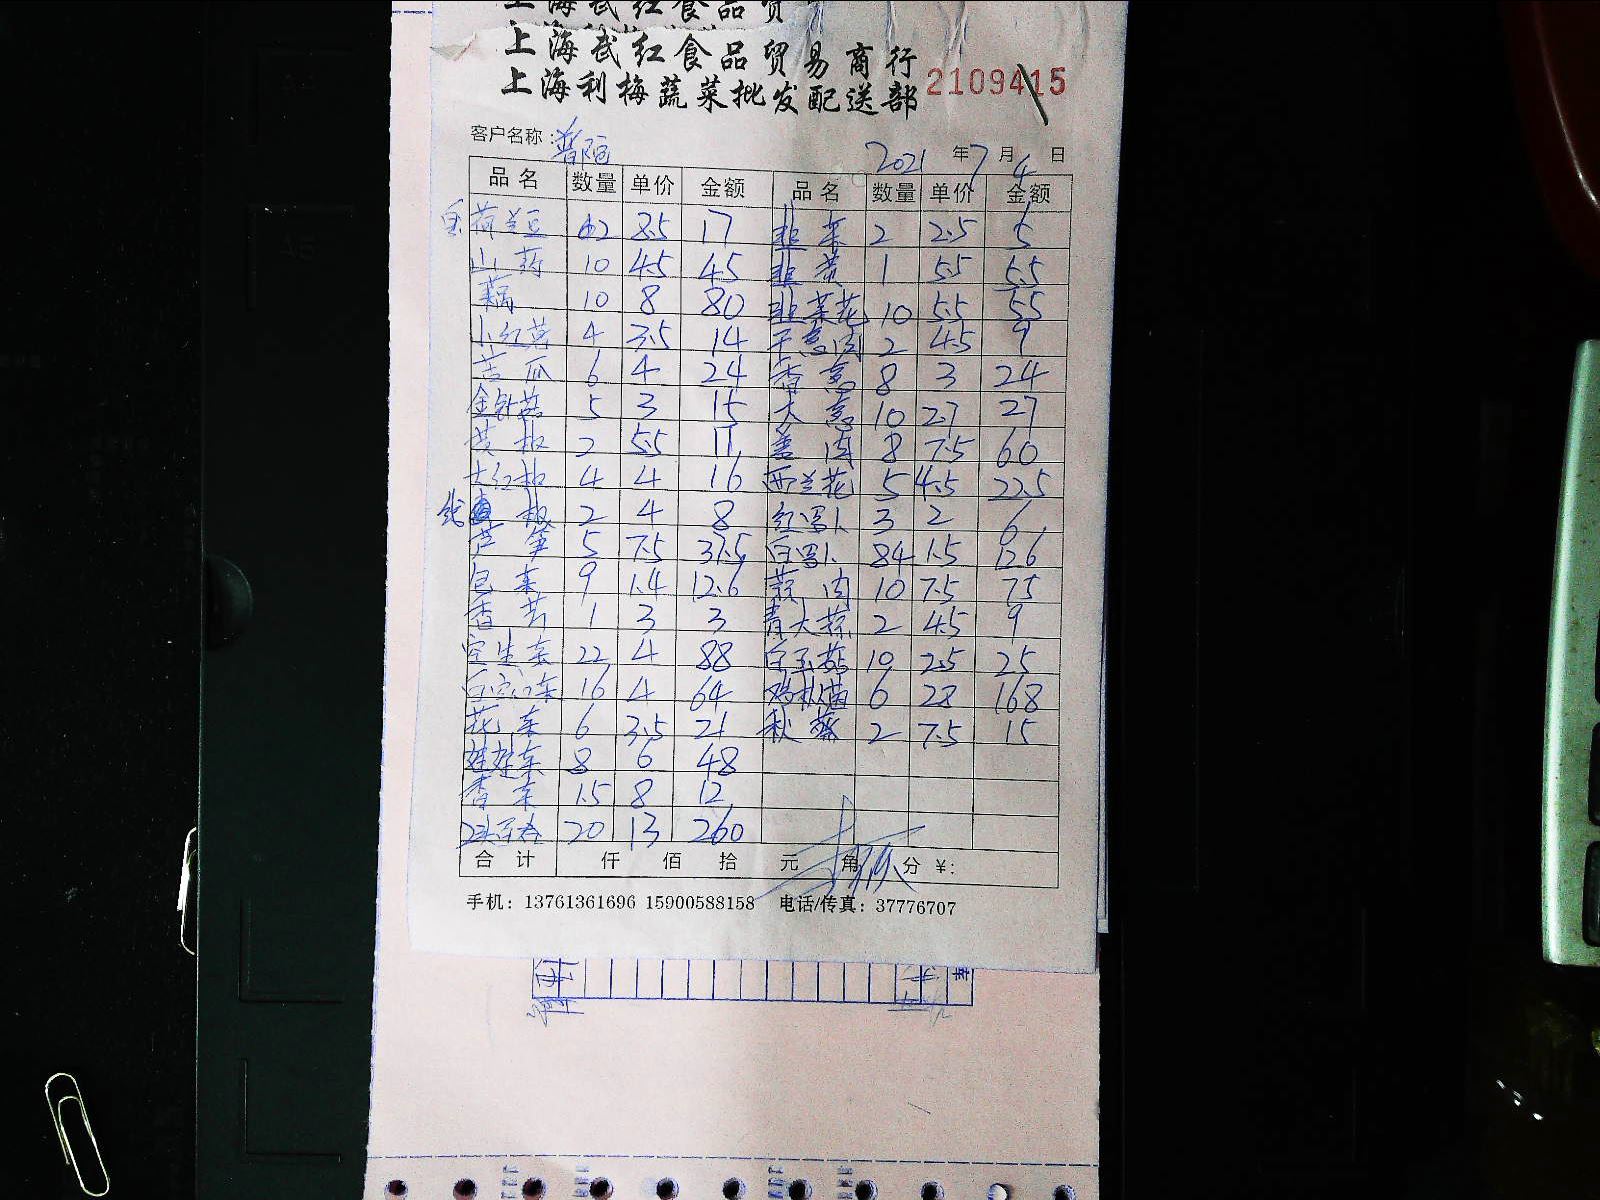 上海武红食品贸易商行
上海利梅蔬菜批发配送部 2109415
客户名称: 普陀 2021 年 7 月 4 日
品名 数量 单价 金额 品名 数量 单价 金额
荷兰豆 2 8.5 17 韭菜 2 2.5 5
山药 10 4.5 45 韭黄 1 5.5 5.5
藕 10 8 80 韭菜花 10 5.5 55
小红茄 4 3.5 14 干葱肉 2 4.5 9
苦瓜 6 4 24 香葱 8 3 24
金针菇 5 3 15 大葱 10 2.7 27
黄椒 2 5.5 11 姜肉 8 7.5 60
大红椒 4 4 16 西兰花 5 4.5 22.5
线椒 2 4 8 红罗卜 3 2 6
芦笋 5 7.5 37.5 白罗卜 84 1.5 126
包菜 9 1.4 12.6 蒜肉 10 7.5 75
香芹 1 3 3 青大蒜 2 4.5 9
空生菜 22 4 88 白玉菇 10 2.5 25
16 4 64 鸡枞菌 6 28 168
花菜 6 3.5 21 秋葵 2 7.5 15
娃娃菜 8 6 48
香菜 1.5 8 12
20 13 260
合计 仟 佰 拾 元 角 分 ¥:
手机: 13761361696 15900588158 电话/传真: 37776707